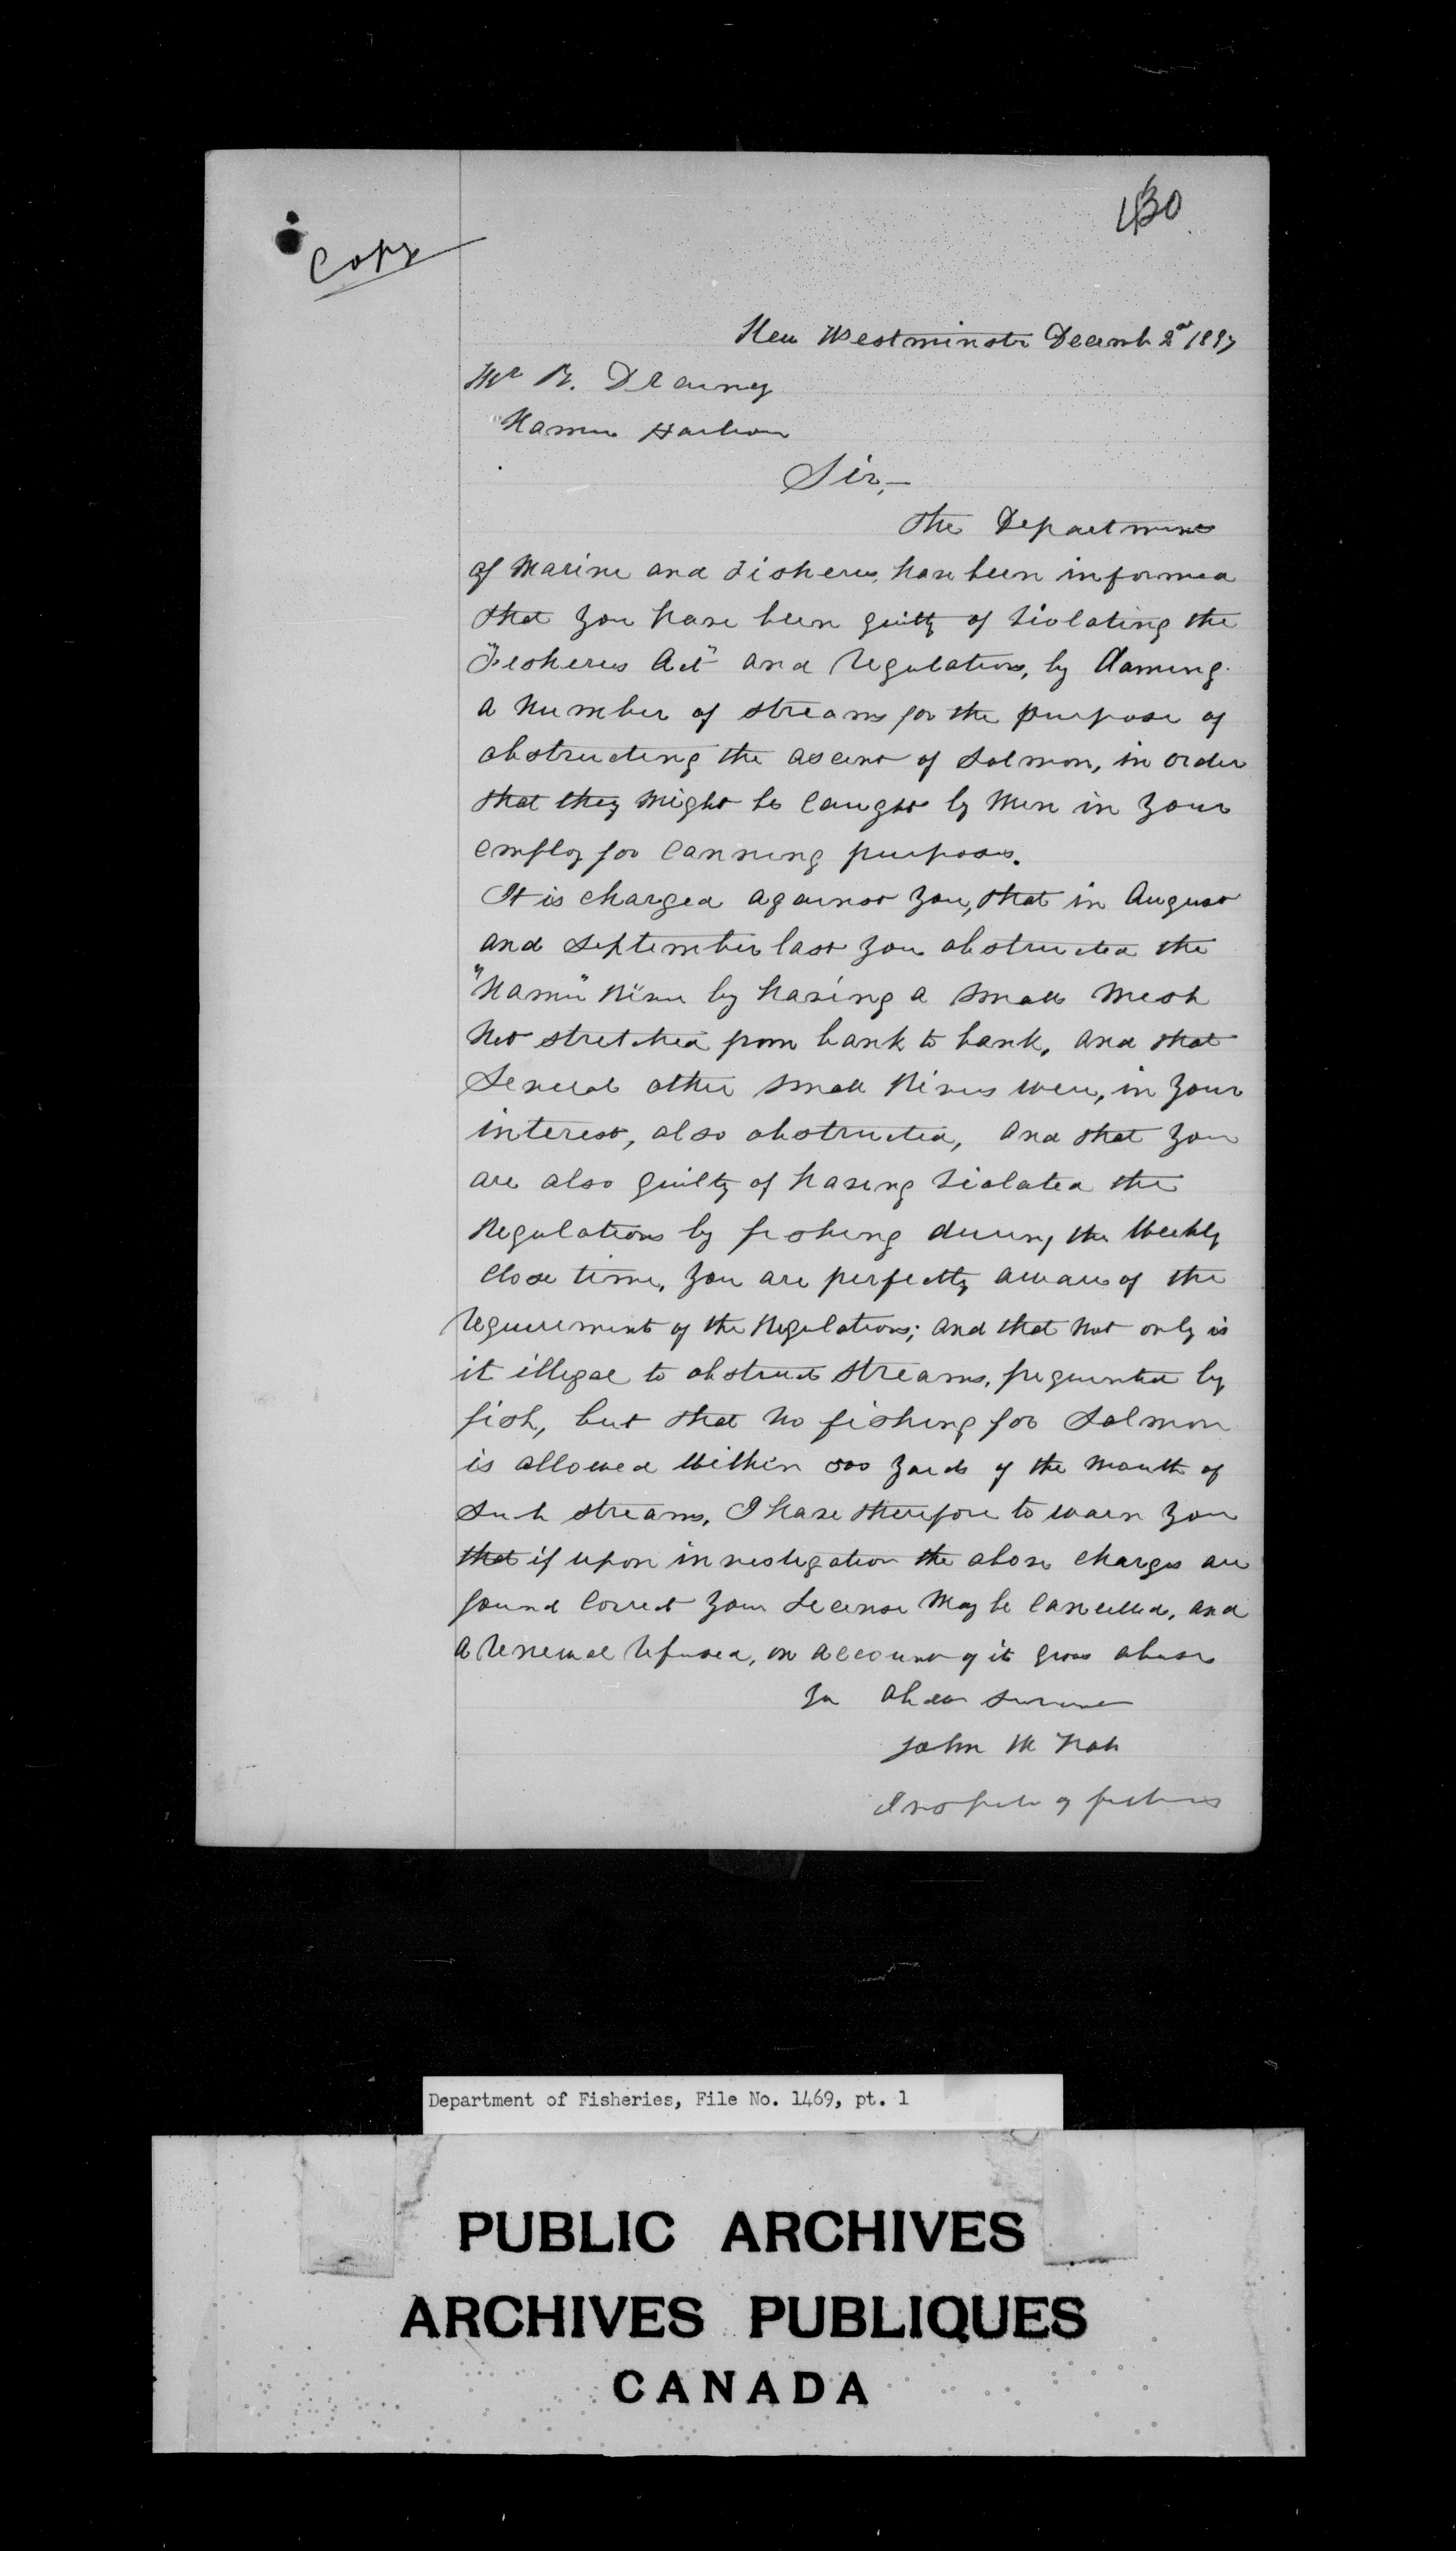 430
Copy
New Westminster Decemb 2nd 1897
Mr R. Draney
Namu Harbour
Sir,—
The Department
of Marine and Fisheries, have been informed
that you have been guilty of violating the
"Fisheries Act" and regulations, by daming
a number of streams for the purpose of
obstructing the ascent of Salmon, in order
that they might be caught by men in your
employ for canning purposes.
It is charged against you, that in August
and September last you obstructed the
"Namu" River by having a small mesh
net stretched from bank to bank, and that
several other small Rivers were, in your
interest, also obstructed, and that you
are also guilty of having violated the
Regulations by fishing during the weekly
close time, you are perfectly aware of the
requirements of the Regulations; and that not only is
it illegal to obstruct streams, frequented by
fish, but that no fishing for Salmon
is allowed within 500 yards of the mouth of
such streams, I have therefore to warn you
that if upon investigation the above charges are
found correct your License may be cancelled, and
a renewal refused, on account of its gross abuse
Yr Obdt Servant
John McNab
Inspector of fisheries
Department of Fisheries, File No. 1469, pt. 1
PUBLIC ARCHIVES
ARCHIVES PUBLIQUES
CANADA